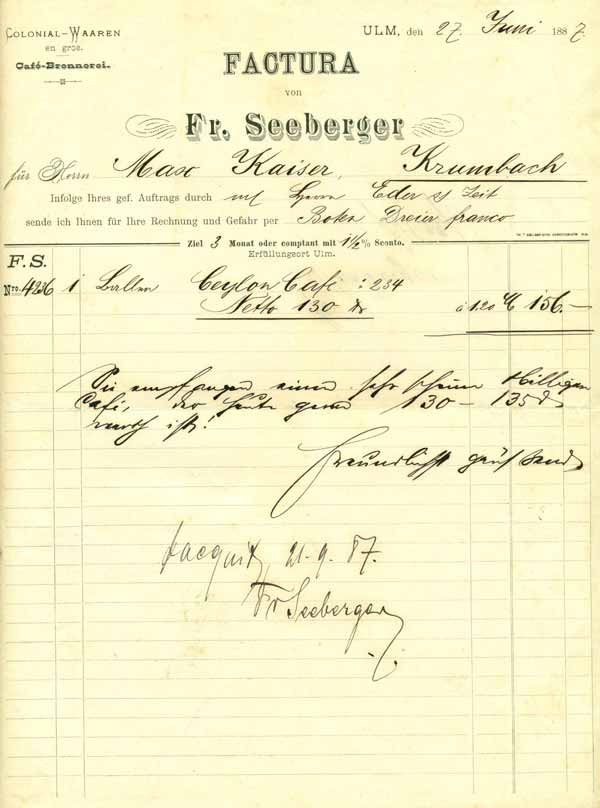 COLONIAL-WAAREN
en gros.
Café-Brennerei.
ULM, den 27. Juni 1887.
FACTURA
von
Fr. Seeberger
für Herrn Max Kaiser, Krumbach
Infolge Ihres gef. Auftrags durch m/ Herrn Eder s/ Zeit
sende ich Ihnen für Ihre Rechnung und Gefahr per Boten Dreier franco
Ziel 3 Monat oder comptant mit 1½% Sconto.
Erfüllungsort Ulm.
F.S.
Nro. 4236 1 Ballen Ceylon Café : 234
Netto 130 à 1.20 M 156.—
Sie empfangen einen sehr schönen billigen
Café, der heute gerne 130 – 135
werth ist!
Freundlichst grüssend
21.9.87.
Fr Seeberger